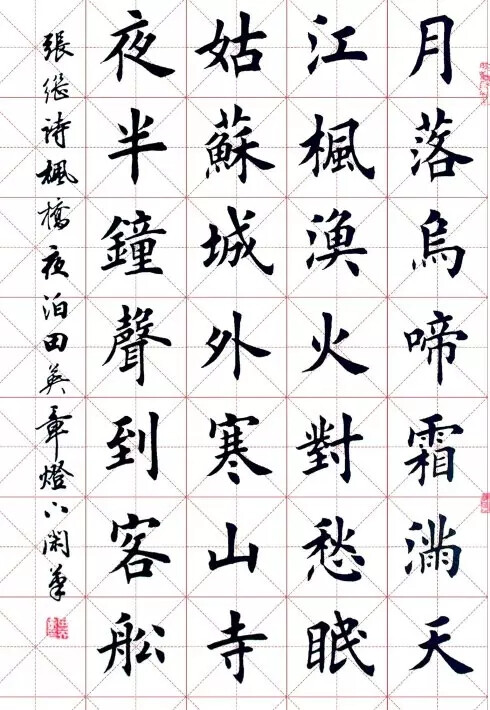 月落烏啼霜滿天
江楓漁火對愁眠
姑蘇城外寒山寺
夜半鐘聲到客船
張繼詩楓橋夜泊田英章燈下閑筆